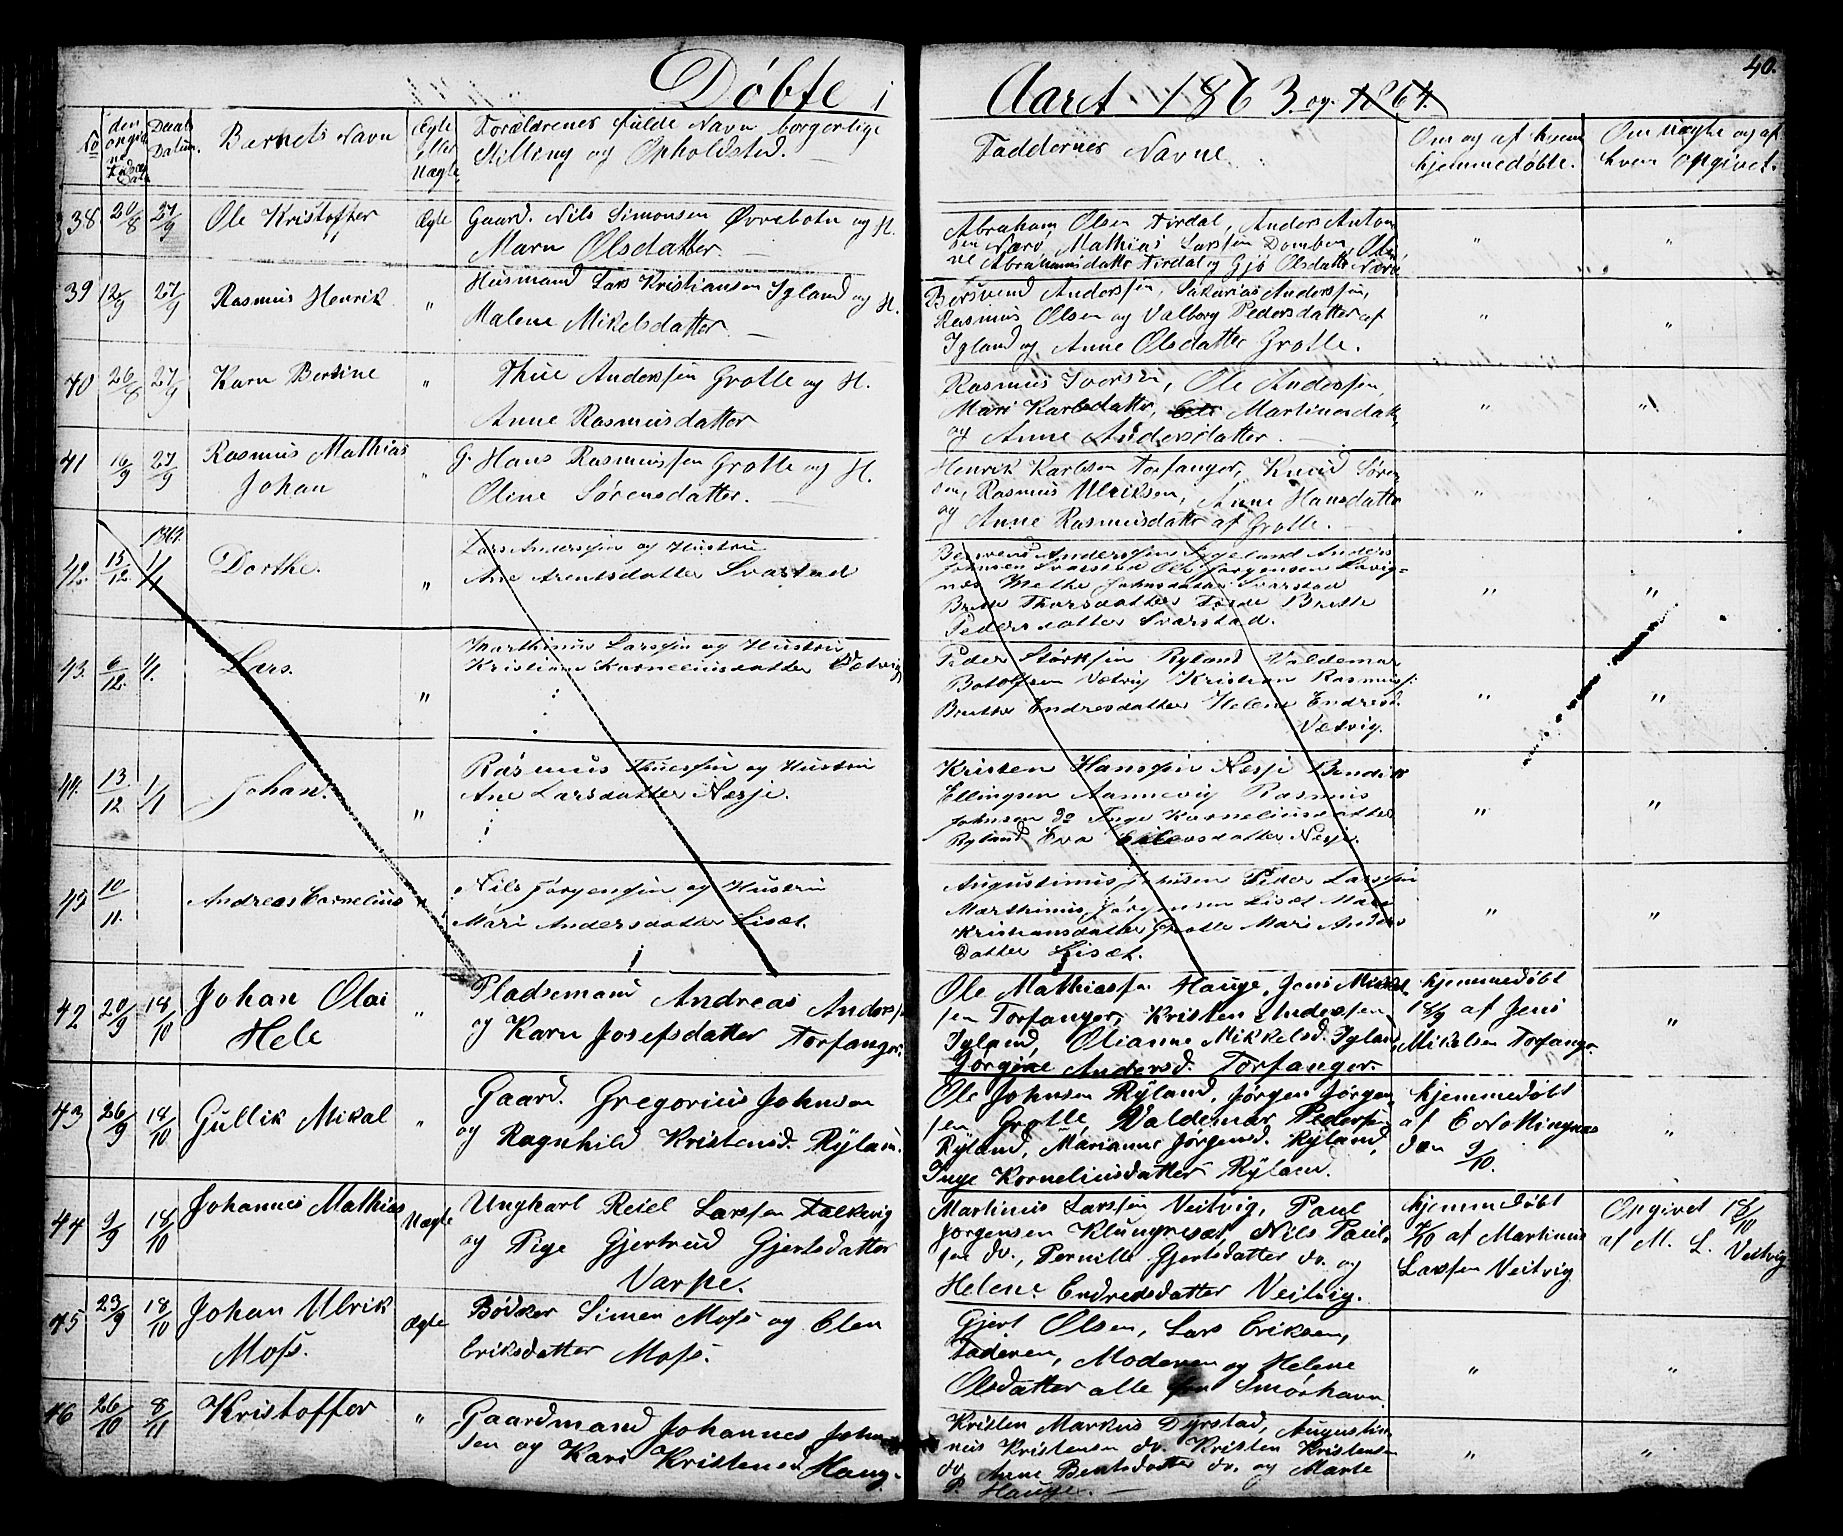 40.
Døbte i Aaret 1863 og 1864.
No
Barnets Navn
Ægte eller Uægte
Forældrenes fulde Navn borgerlige
Stilling og Opholdsted.
Faddernes Navne.
Om og af hvem
hjemmedøbte.
Om uægte og af
hvem opgivet.
38 20/8 27/9 Ole Kristoffer Ægte Gaard. Nils Simonsen Øvrebotn og H.
Marn Olsdatter.
Abraham Olsen Tirdal, Anders Anton
sen Nærø, Mathias Larsen Domben, Oli
ne Abrahamsdattr Tirdal og Gjø Olsdattr Nærø
" "
39 12/9 27/9 Rasmus Henrik " Husmand Lars Kristiansen Igland og H.
Malene Mikelsdatter.
Bersvend Andersen, Sakarias Andersen,
Rasmus Olsen og Valborg Pedersdatter af
Igland og Anne Olsdatter Grotle.
" "
40 26/8 27/9 Karn Bertine " Thue Andersen Grotle og H.
Anne Rasmusdatter
Rasmus Iversen, Ole Andersen,
Mari Karlsdattr, Martinesdatt,
og Anne Andersdatter.
" "
41 16/9 27/9 Rasmus Mathias
Johan
" G. Hans Rasmussen Grotle og H.
Oline Sørensdatter.
Henrik Karlsen Torfanger, Knud Søren
sen, Rasmus Ulriksen, Anne Hansdattr
og Anne Rasmusdattr af Grotle.
" "
1864.
42. 15/12. 1/1 Dorthe. " Lars Andersen og Hustru
Ane Arentsdatter Svarstad
Andersen Igeland Anders
Jensen Svarstad Ole Jørgensen Lavig=
nes Methe Johnsdatter Svarstad
Brette Thorsdatter Brette
Pedersdatter Svarstad.
" "
43. 6/12. 1/1. Lars. " Marthinus Larsen og Hustru
Kristiane Korneliusdatter Vetvig
Peder Størksen Ryland Valdemar
Botolfsen Vetvig Kristian Rasmuss:
Brette Endresdatter Helene Endresd.
Vetvig.
" "
44. 13/12 1/1 Johan. " Rasmus Thuesen og Hustru
Ane Larsdatter Nesje.
Kristen Hansen Nesje Bendik
Ellingsen Aannevig Rasmus
Johnsen do Inge Korneliusdatter
Ryland Eva Eilersdatter Nesje.
" "
45 10/11. Andreas Cornelius " Nils Jørgensen og Hustru
Mari Andersdatter Liset.
Augustinus Johnsen Peder Larsen
Marthinus Jørgensen Liset Mari
Kristiansdatter Grotle Mari Anders
datter Liset.
" "
42 20/9 18/10 Johan Olai
Hele
" Pladsemand Andreas Anders
og Karn Josefsdatter Torfanger.
Ole Mathiassen Hauge, Jens Mikkel
sen Torfanger, Kristen Andersen
Igland, Olianne Mikkelsd. Igland,
Jørgine Andersd. Torfanger.
hjemmedøbt
18/9 af Jens
Mikelsen Torfanger
"
43 26/9 18/10 Gullik Mikal " Gaard. Gregorius Johnsen
og Ragnhild Kristensd. Ryland.
Ole Johnsen Ryland, Jørgen Jørgen
sen Grotle, Valdemar Pedersen
Ryland, Marianne Jørgensd. Ryland,
Inge Korneliusdatter Ryland.
hjemmedøbt
af E Nottingnes
den 9/10.
"
44 9/9 18/10 Johannes Mathias Uægte Ungkarl Reiel Larsen Falkevig
og Pige Gjertrud Gjertsdatter
Varpe.
Martinus Larsen Veitvig, Paul
Jørgensen Klungreset, Nils Paul-
sen do., Pernille Gjertsdatter do. og
Helene Endresdatter Veitvig.
hjemmedøbt
af Martinus
Larsen Veitvig
Opgivet 18/10
af M. L. Veitvig
45 23/9 18/10 Johan Ulrik
Moss.
Ægte Bødker Simen Moss og Elen
Eriksdatter Moss.
Gjert Olsen, Lars Eriksen,
Faderen, Moderen og Helene
Olsdatter alle fra Smørhavn.
" "
46 26/10 8/11 Kristoffer " Gaardmand Johannes John
sen og Kari Kristensd Haug.
Kristen Markus Dyrstad, Augusti
nus Kristensen do. Kristen Kristensen
do, Anne Bentsdatter do. og Marte
P. Hauge.
" "